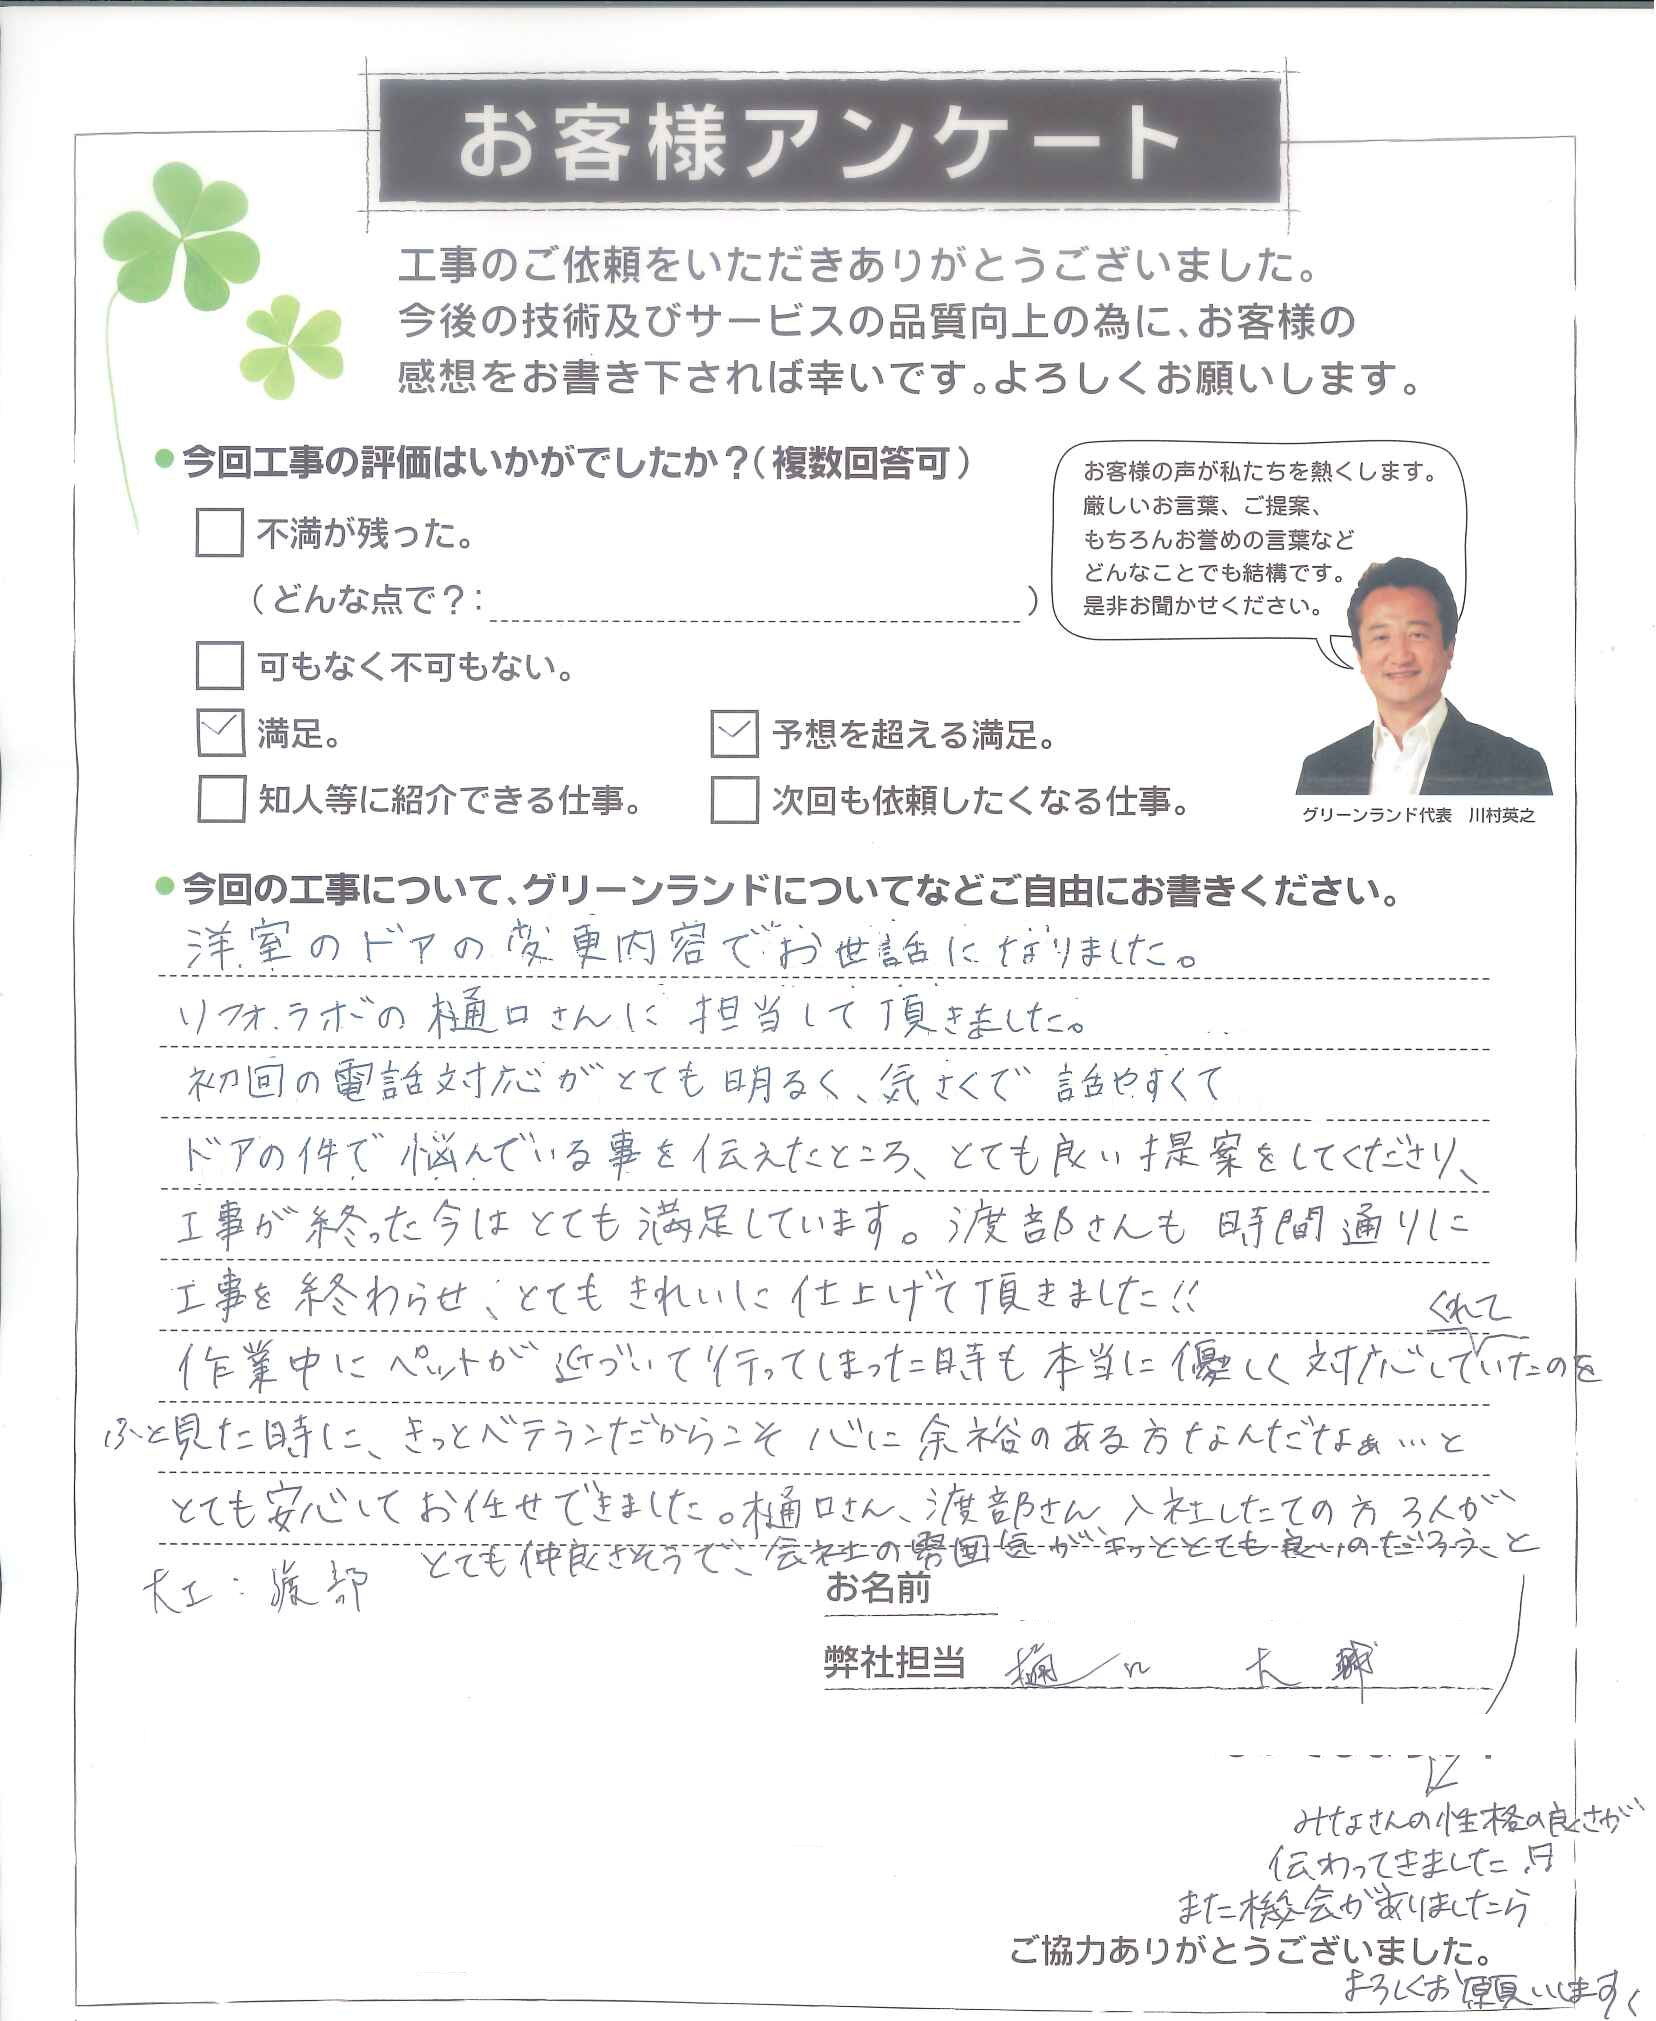 お客様アンケート
工事のご依頼をいただきありがとうございました。
今後の技術及びサービスの品質向上の為に、お客様の
感想をお書き下されば幸いです。よろしくお願いします。
今回工事の評価はいかがでしたか？（複数回答可）
不満が残った。
（どんな点で？：　）
可もなく不可もない。
満足。
予想を超える満足。
知人等に紹介できる仕事。
次回も依頼したくなる仕事。
お客様の声が私たちを熱くします。
厳しいお言葉、ご提案、
もちろんお誉めの言葉など
どんなことでも結構です。
是非お聞かせください。
グリーンランド代表　川村英之
今回の工事について、グリーンランドについてなどご自由にお書きください。
洋室のドアの変更内容でお世話になりました。
リフォ.ラボの樋口さんに担当して頂きました。
初回の電話対応がとても明るく、気さくで話やすくて
ドアの件で悩んでいる事を伝えたところ、とても良い提案をしてくださり、
工事が終った今はとても満足しています。渡部さんも時間通りに
工事を終わらせ、とてもきれいに仕上げて頂きました!!
くれて
作業中にペットが近づいて行ってしまった時も本当に優しく対応していたのを
ふと見た時に、きっとベテランだからこそ心に余裕のある方なんだなぁ…と
とても安心してお任せできました。樋口さん、渡部さん入社したての方3人が
とても仲良さそうで、会社の雰囲気がキッととても良いのだろうと
大工：渡部
お名前
弊社担当　樋口　大輔
みなさんの性格の良さが
伝わってきました
また機会がありましたら
ご協力ありがとうございました。
よろしくお願いします